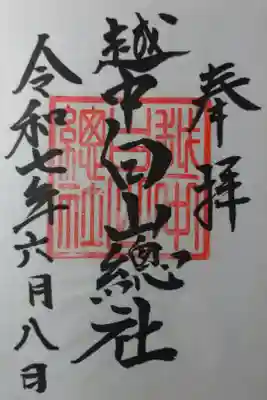 奉拝
越中白山總社
令和七年六月八日
越中白山總社